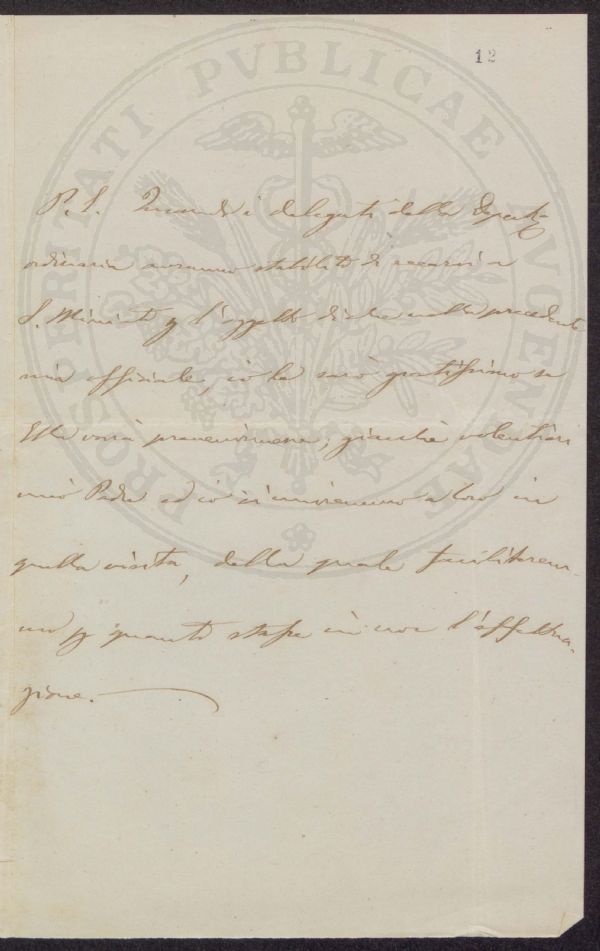 12
PROSPERITATI PVBLICAE AVGENDAE
P. S. Quando i delegati della Deput.e
ordinaria avranno stabilito di recarsi a
S. Miniato p l'oggetto di che nella precedente
mia officiale, io le sarò gratissimo se
Ella vorrà prevenirmene; giacchè volentieri
mio Padre ed io ci uniremmo a loro in
quella visita, della quale faciliterem-
mo p quanto stasse in noi l'effettua-
zione.